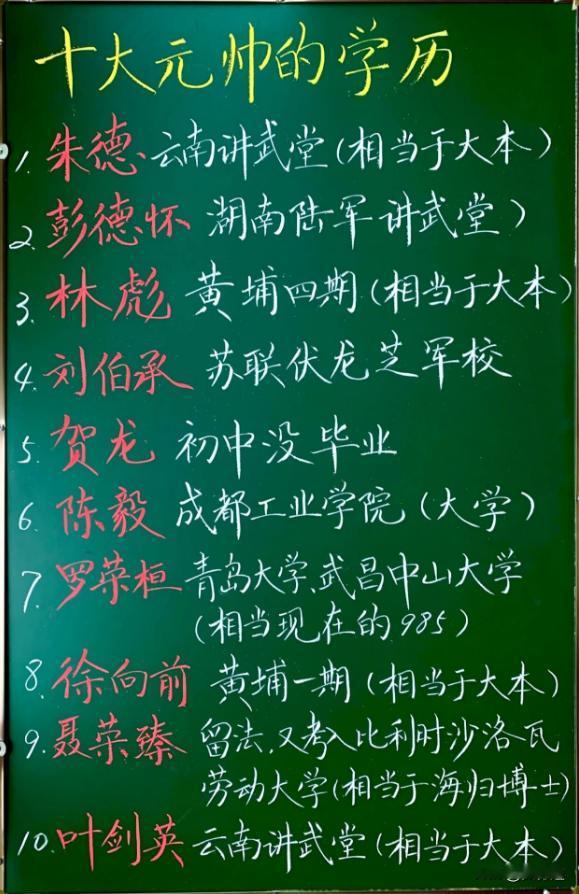 十大元帅的学历
1. 朱德 云南讲武堂(相当于大本)
2. 彭德怀 湖南陆军讲武堂)
3. 林彪 黄埔四期(相当于大本)
4. 刘伯承 苏联伏龙芝军校
5. 贺龙 初中没毕业
6. 陈毅 成都工业学院(大学)
7. 罗荣桓 青岛大学、武昌中山大学
(相当现在的985)
8. 徐向前 黄埔一期(相当于大本)
9. 聂荣臻 留法,又考入比利时沙洛瓦
劳动大学(相当于海归博士)
10. 叶剑英 云南讲武堂(相当于大本)